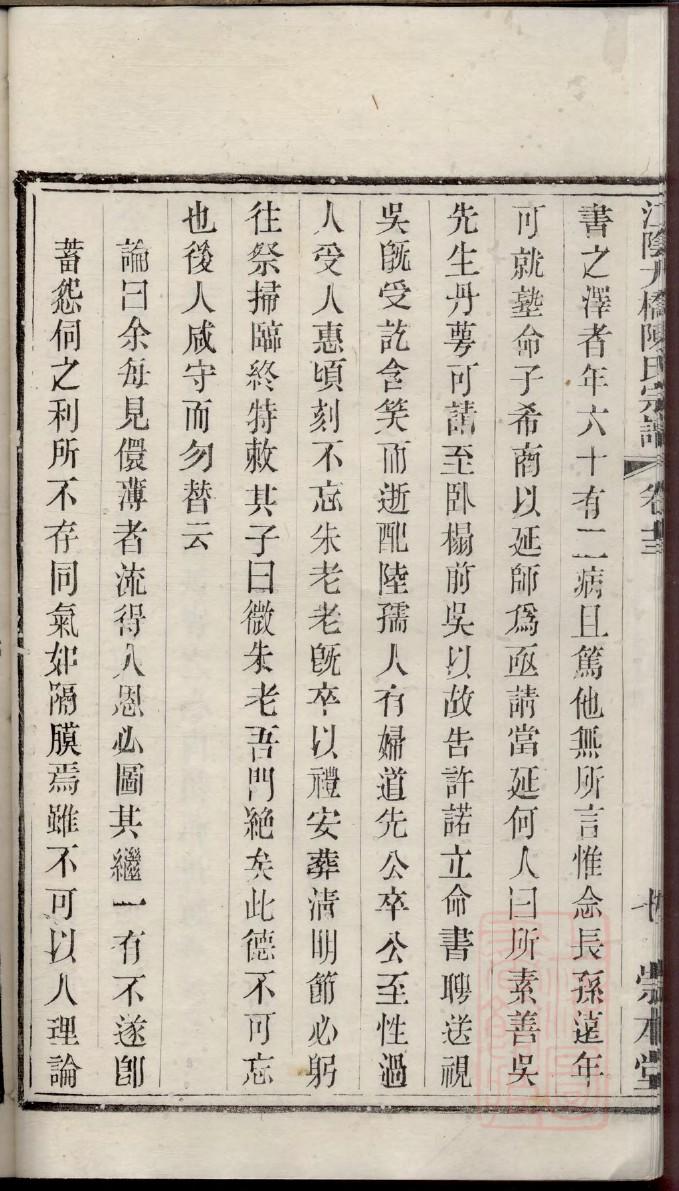 江陰九橋陳氏宗譜 卷十三 崇本堂
書之澤者年六十有二病且篤他無所言惟念長孫遠年
可就塾命子希商以延師爲亟請當延何人曰所素善吳
先生丹萼可請至卧榻前吳以故吿許諾立命書聘送視
吳旣受訖含笑而逝配陸孺人有婦道先公卒公至性過
人受人惠頃刻不忘朱老老旣卒以禮安葬淸明節必躬
往祭掃臨終特敕其子曰微朱老吾門絶矣此德不可忘
也後人咸守而勿替云
論曰余每見儇薄者流得人恩必圖其繼一有不遂卽
蓄怨伺之利所不存同氣如隔膜焉雖不可以人理論